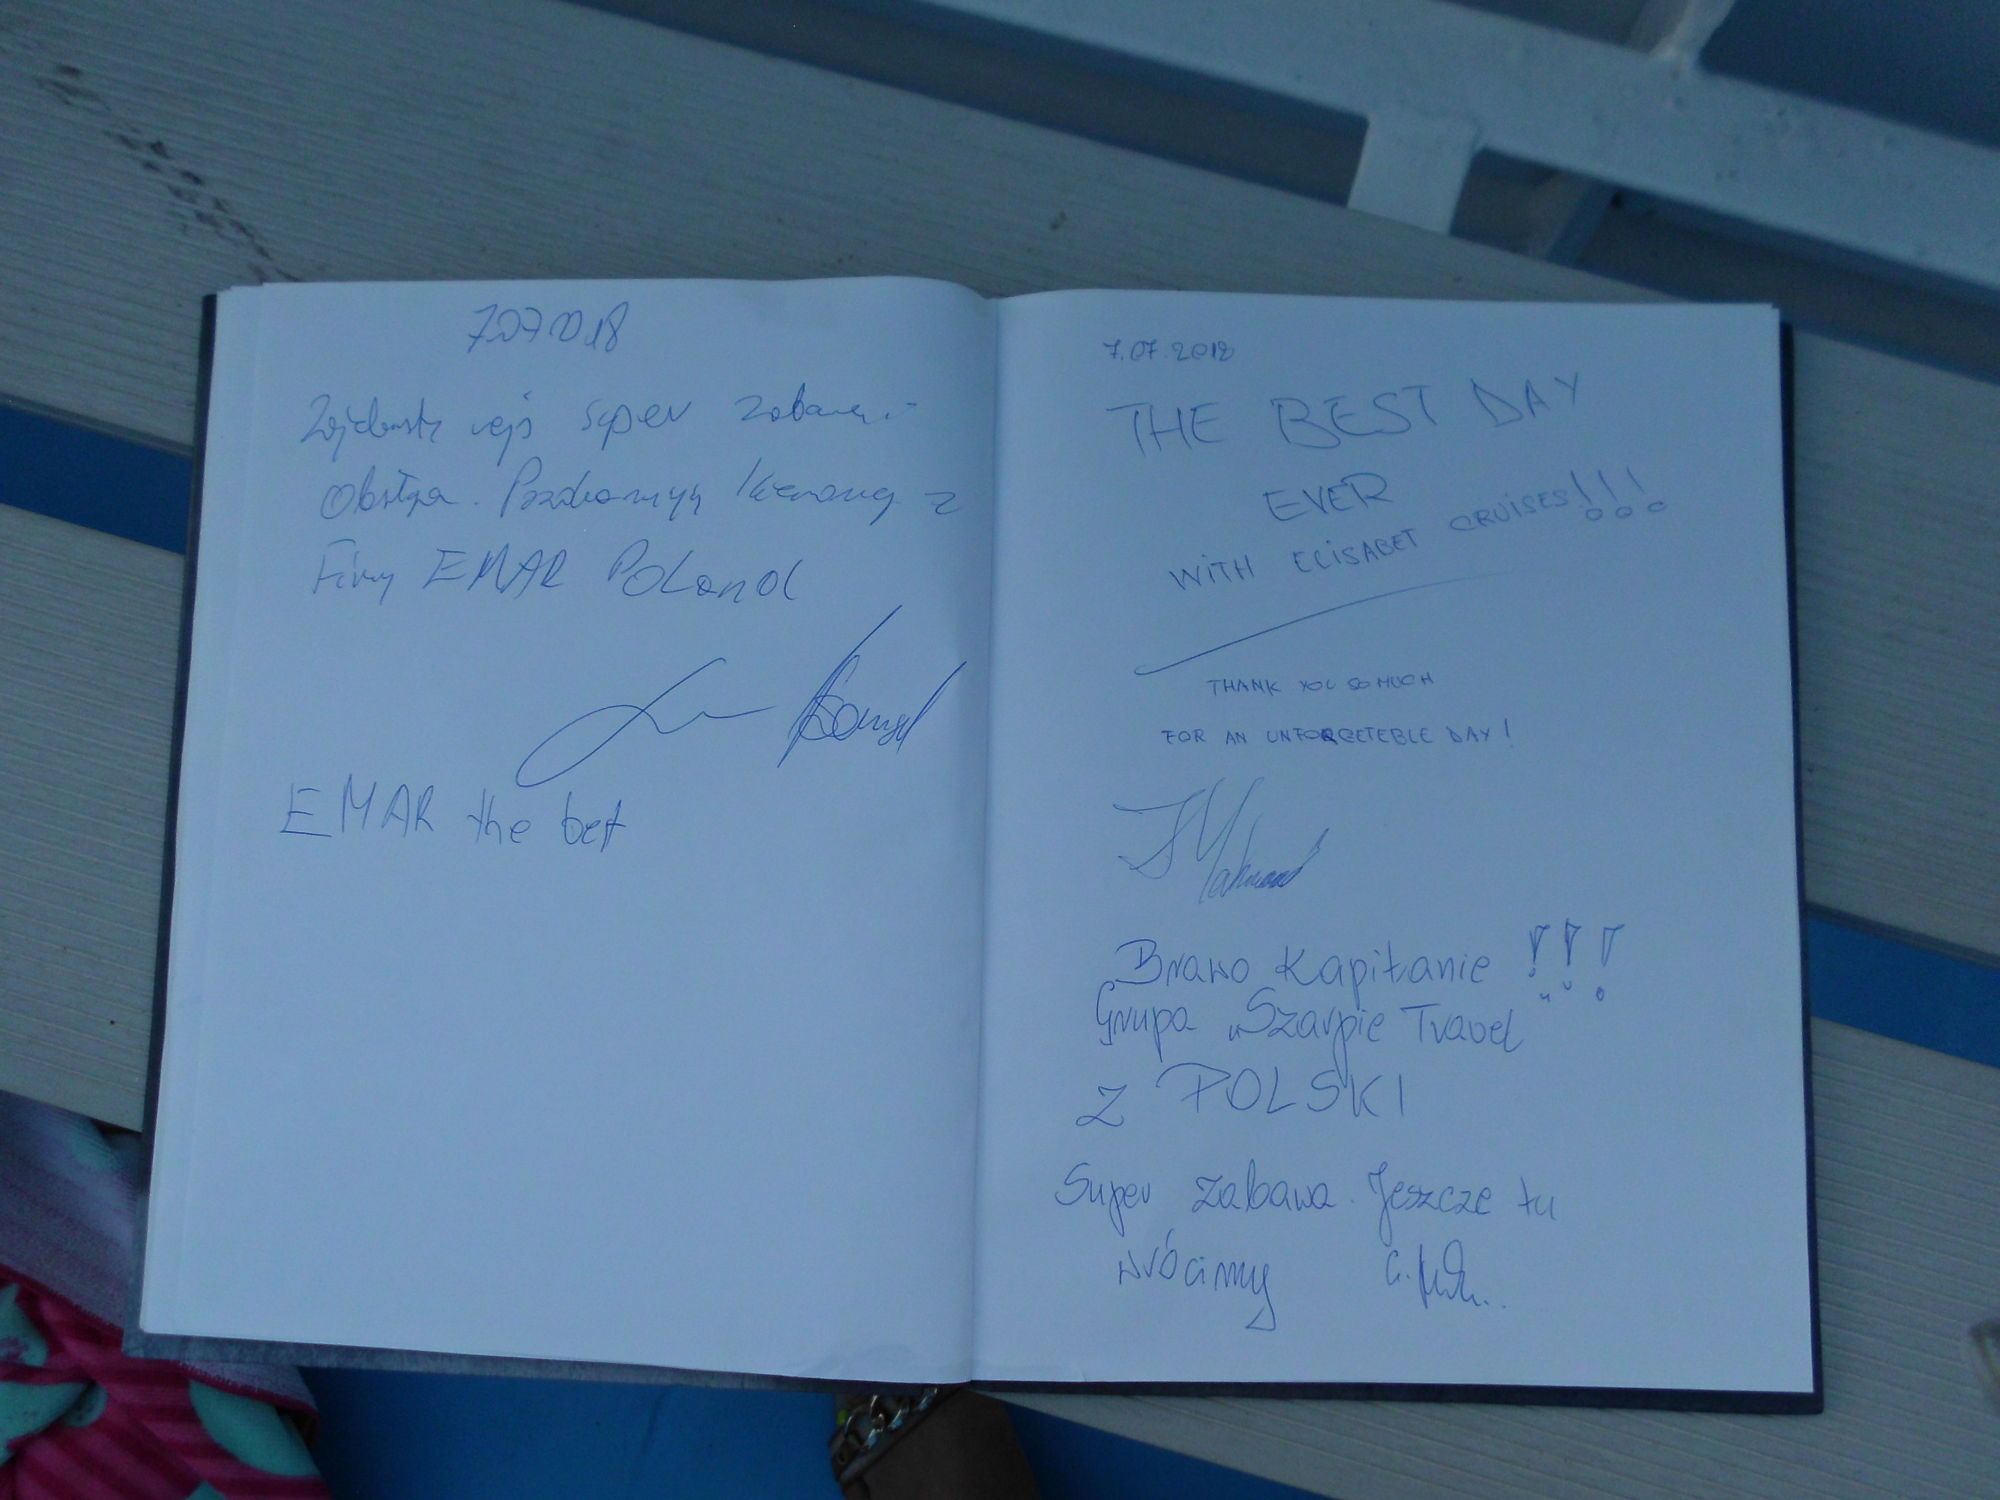 7.07.2018
super
Obsługa. Pozdrawiamy
Firmy EMAR Poland
EMAR the best
7.07.2018
THE BEST DAY
EVER
WITH ELISABET CRUISES!!!
THANK YOU SO MUCH
FOR AN UNFORGETEBLE DAY!
Brawo Kapitanie !!!
Grupa „Szarpie Travel
Z POLSKI
Super zabawa. Jeszcze tu
wrócimy